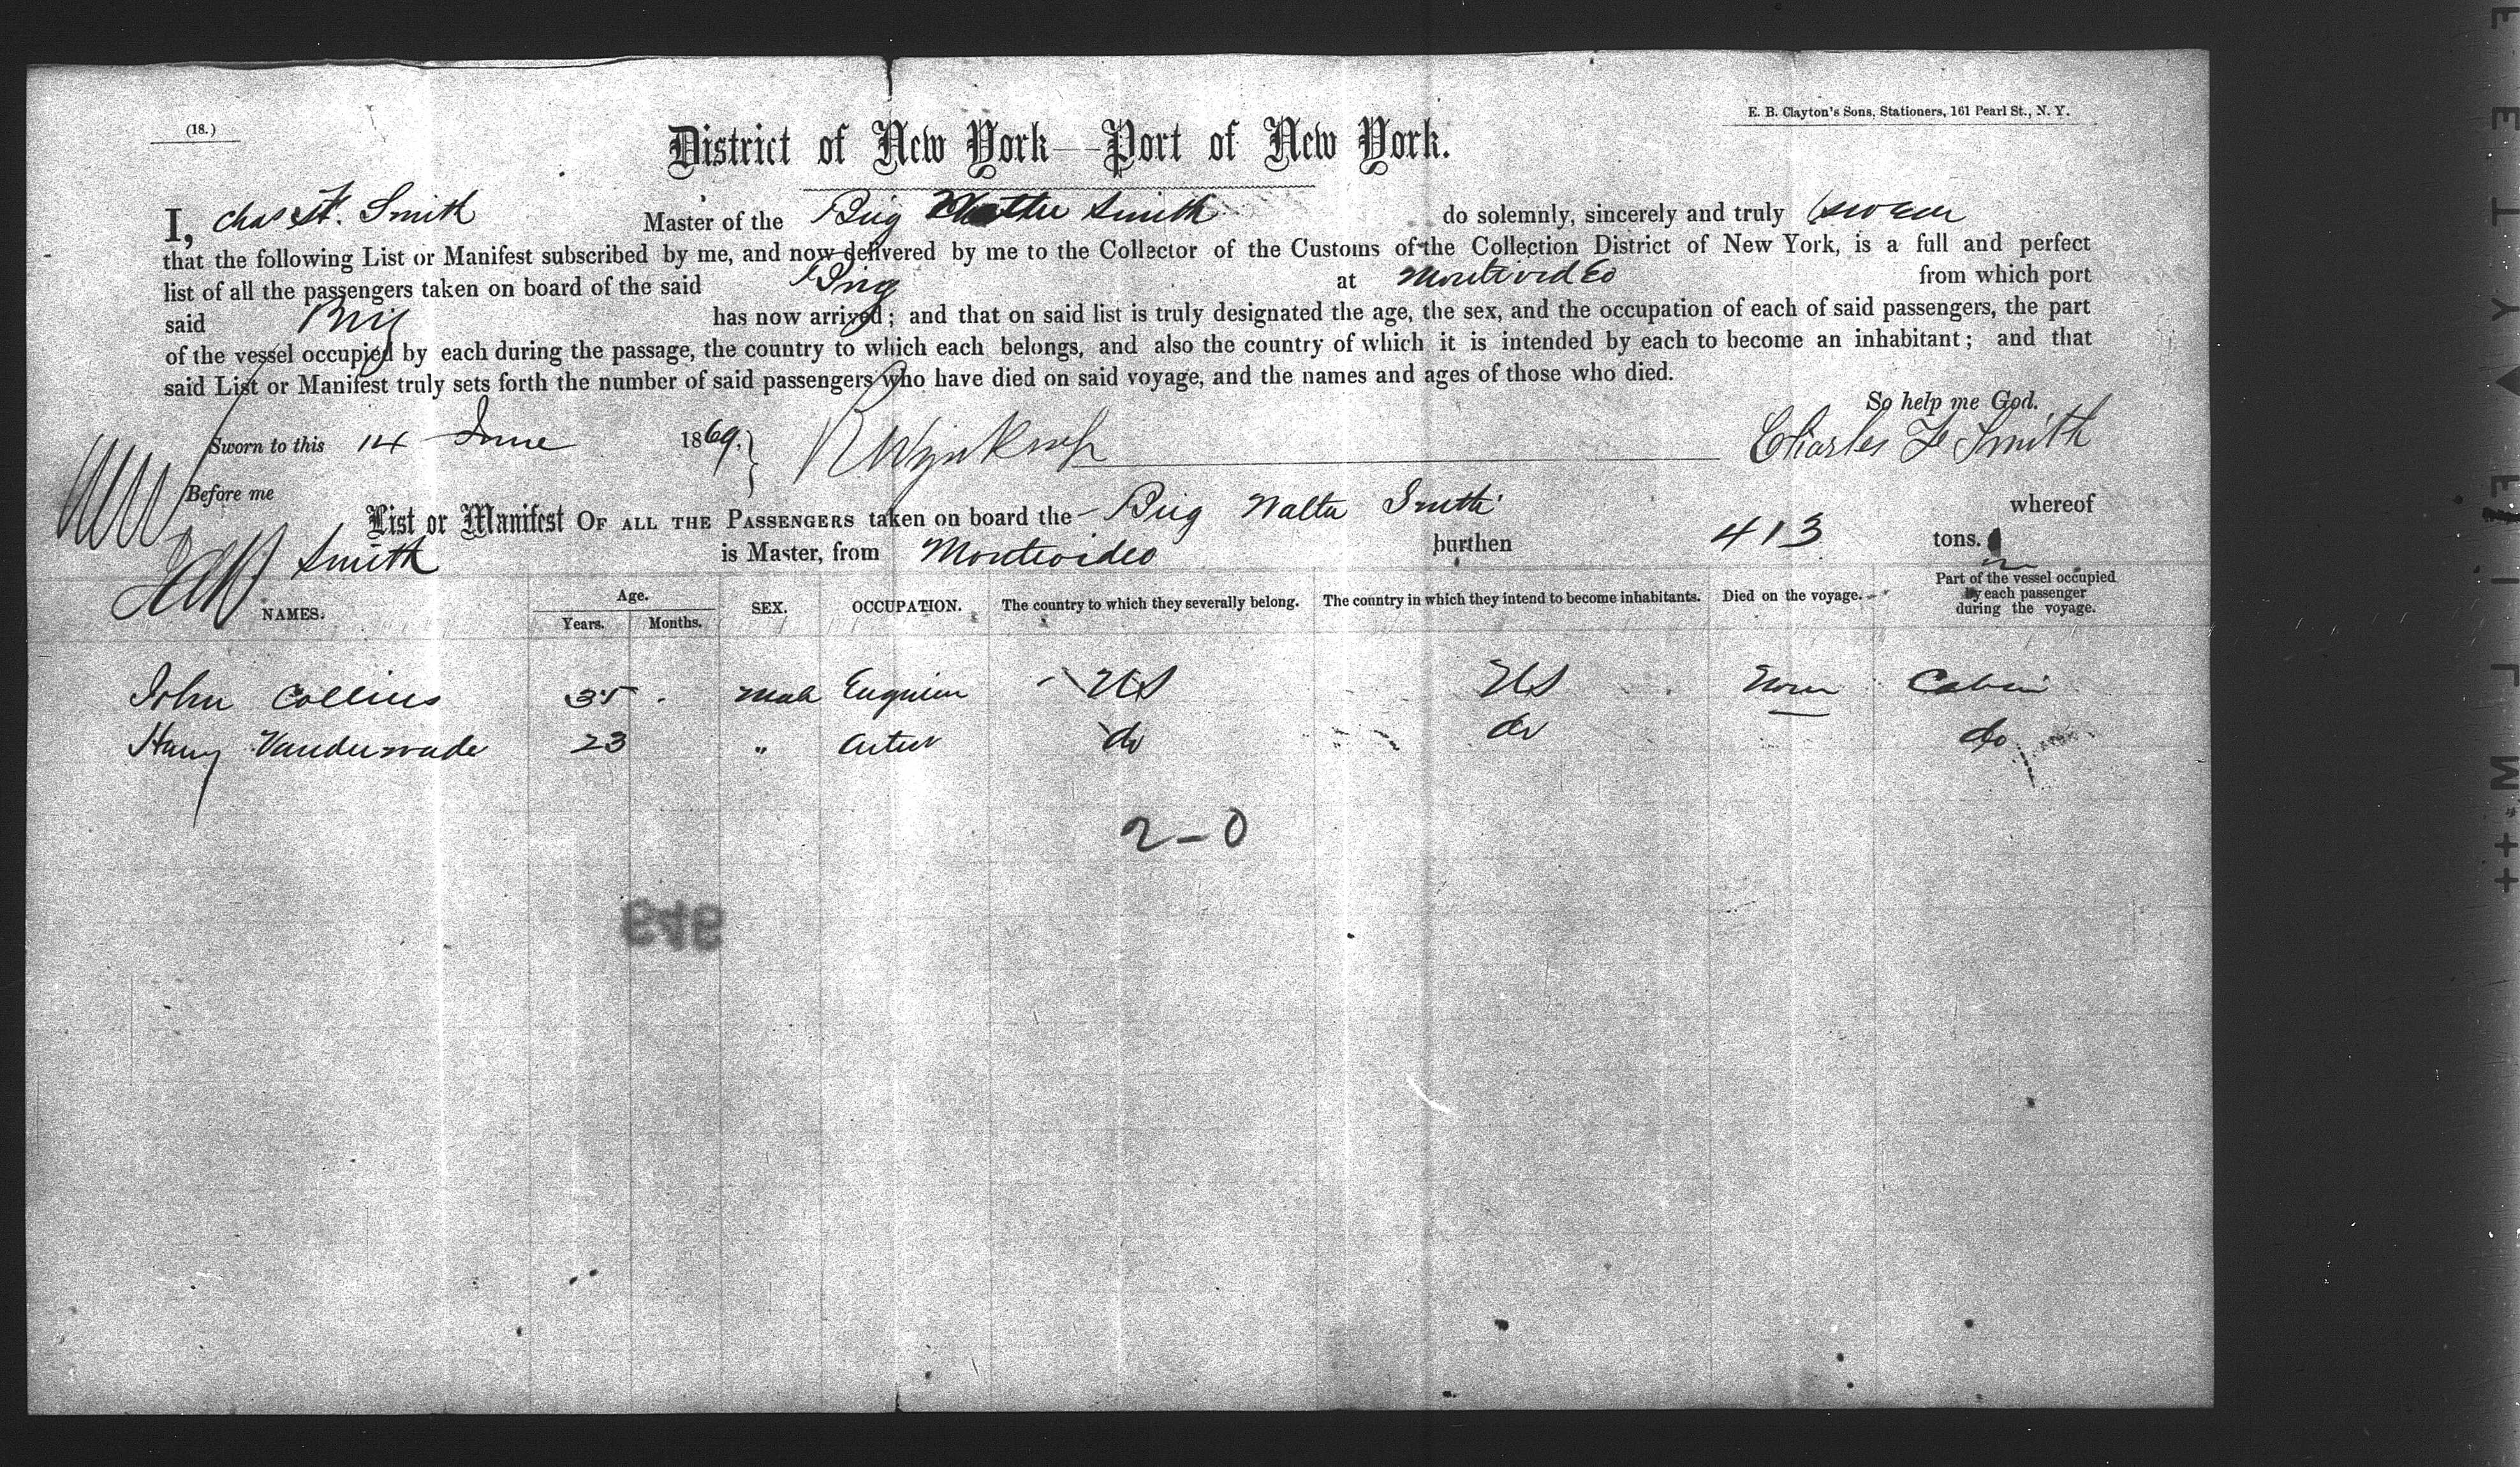 (18.)
E. B. Clayton's Sons, Stationers, 161 Pearl St., N. Y.
District of New York—Port of New York.
I, Chas F. Smith Master of the Brig Walter Smith do solemnly, sincerely and truly swear
that the following List or Manifest subscribed by me, and now delivered by me to the Collector of the Customs of the Collection District of New York, is a full and perfect
list of all the passengers taken on board of the said Brig at Montevideo from which port
said Brig has now arrived; and that on said list is truly designated the age, the sex, and the occupation of each of said passengers, the part
of the vessel occupied by each during the passage, the country to which each belongs, and also the country of which it is intended by each to become an inhabitant; and that
said List or Manifest truly sets forth the number of said passengers who have died on said voyage, and the names and ages of those who died.
So help me God.
Sworn to this 14 June 1869. Charles F Smith
Before me
List or Manifest OF ALL THE PASSENGERS taken on board the Brig Walter Smith whereof
Smith is Master, from Montevideo burthen 413 tons.
NAMES. Age. Years. Months. SEX. OCCUPATION. The country to which they severally belong. The country in which they intend to become inhabitants. Died on the voyage. Part of the vessel occupied by each passenger during the voyage.
John Collins 35 Male Engineer US US None Cabin
Harry 23 " Artist do do do
2-0